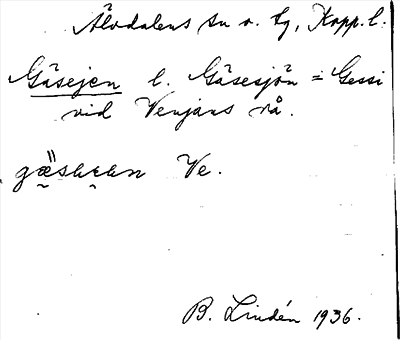 Älvdalens sn o. tg, Kopp. l.
Gäsejen l. Gäsesjön = Gessi
vid Venjans rå.
Ve.
B. Lindén 1936.